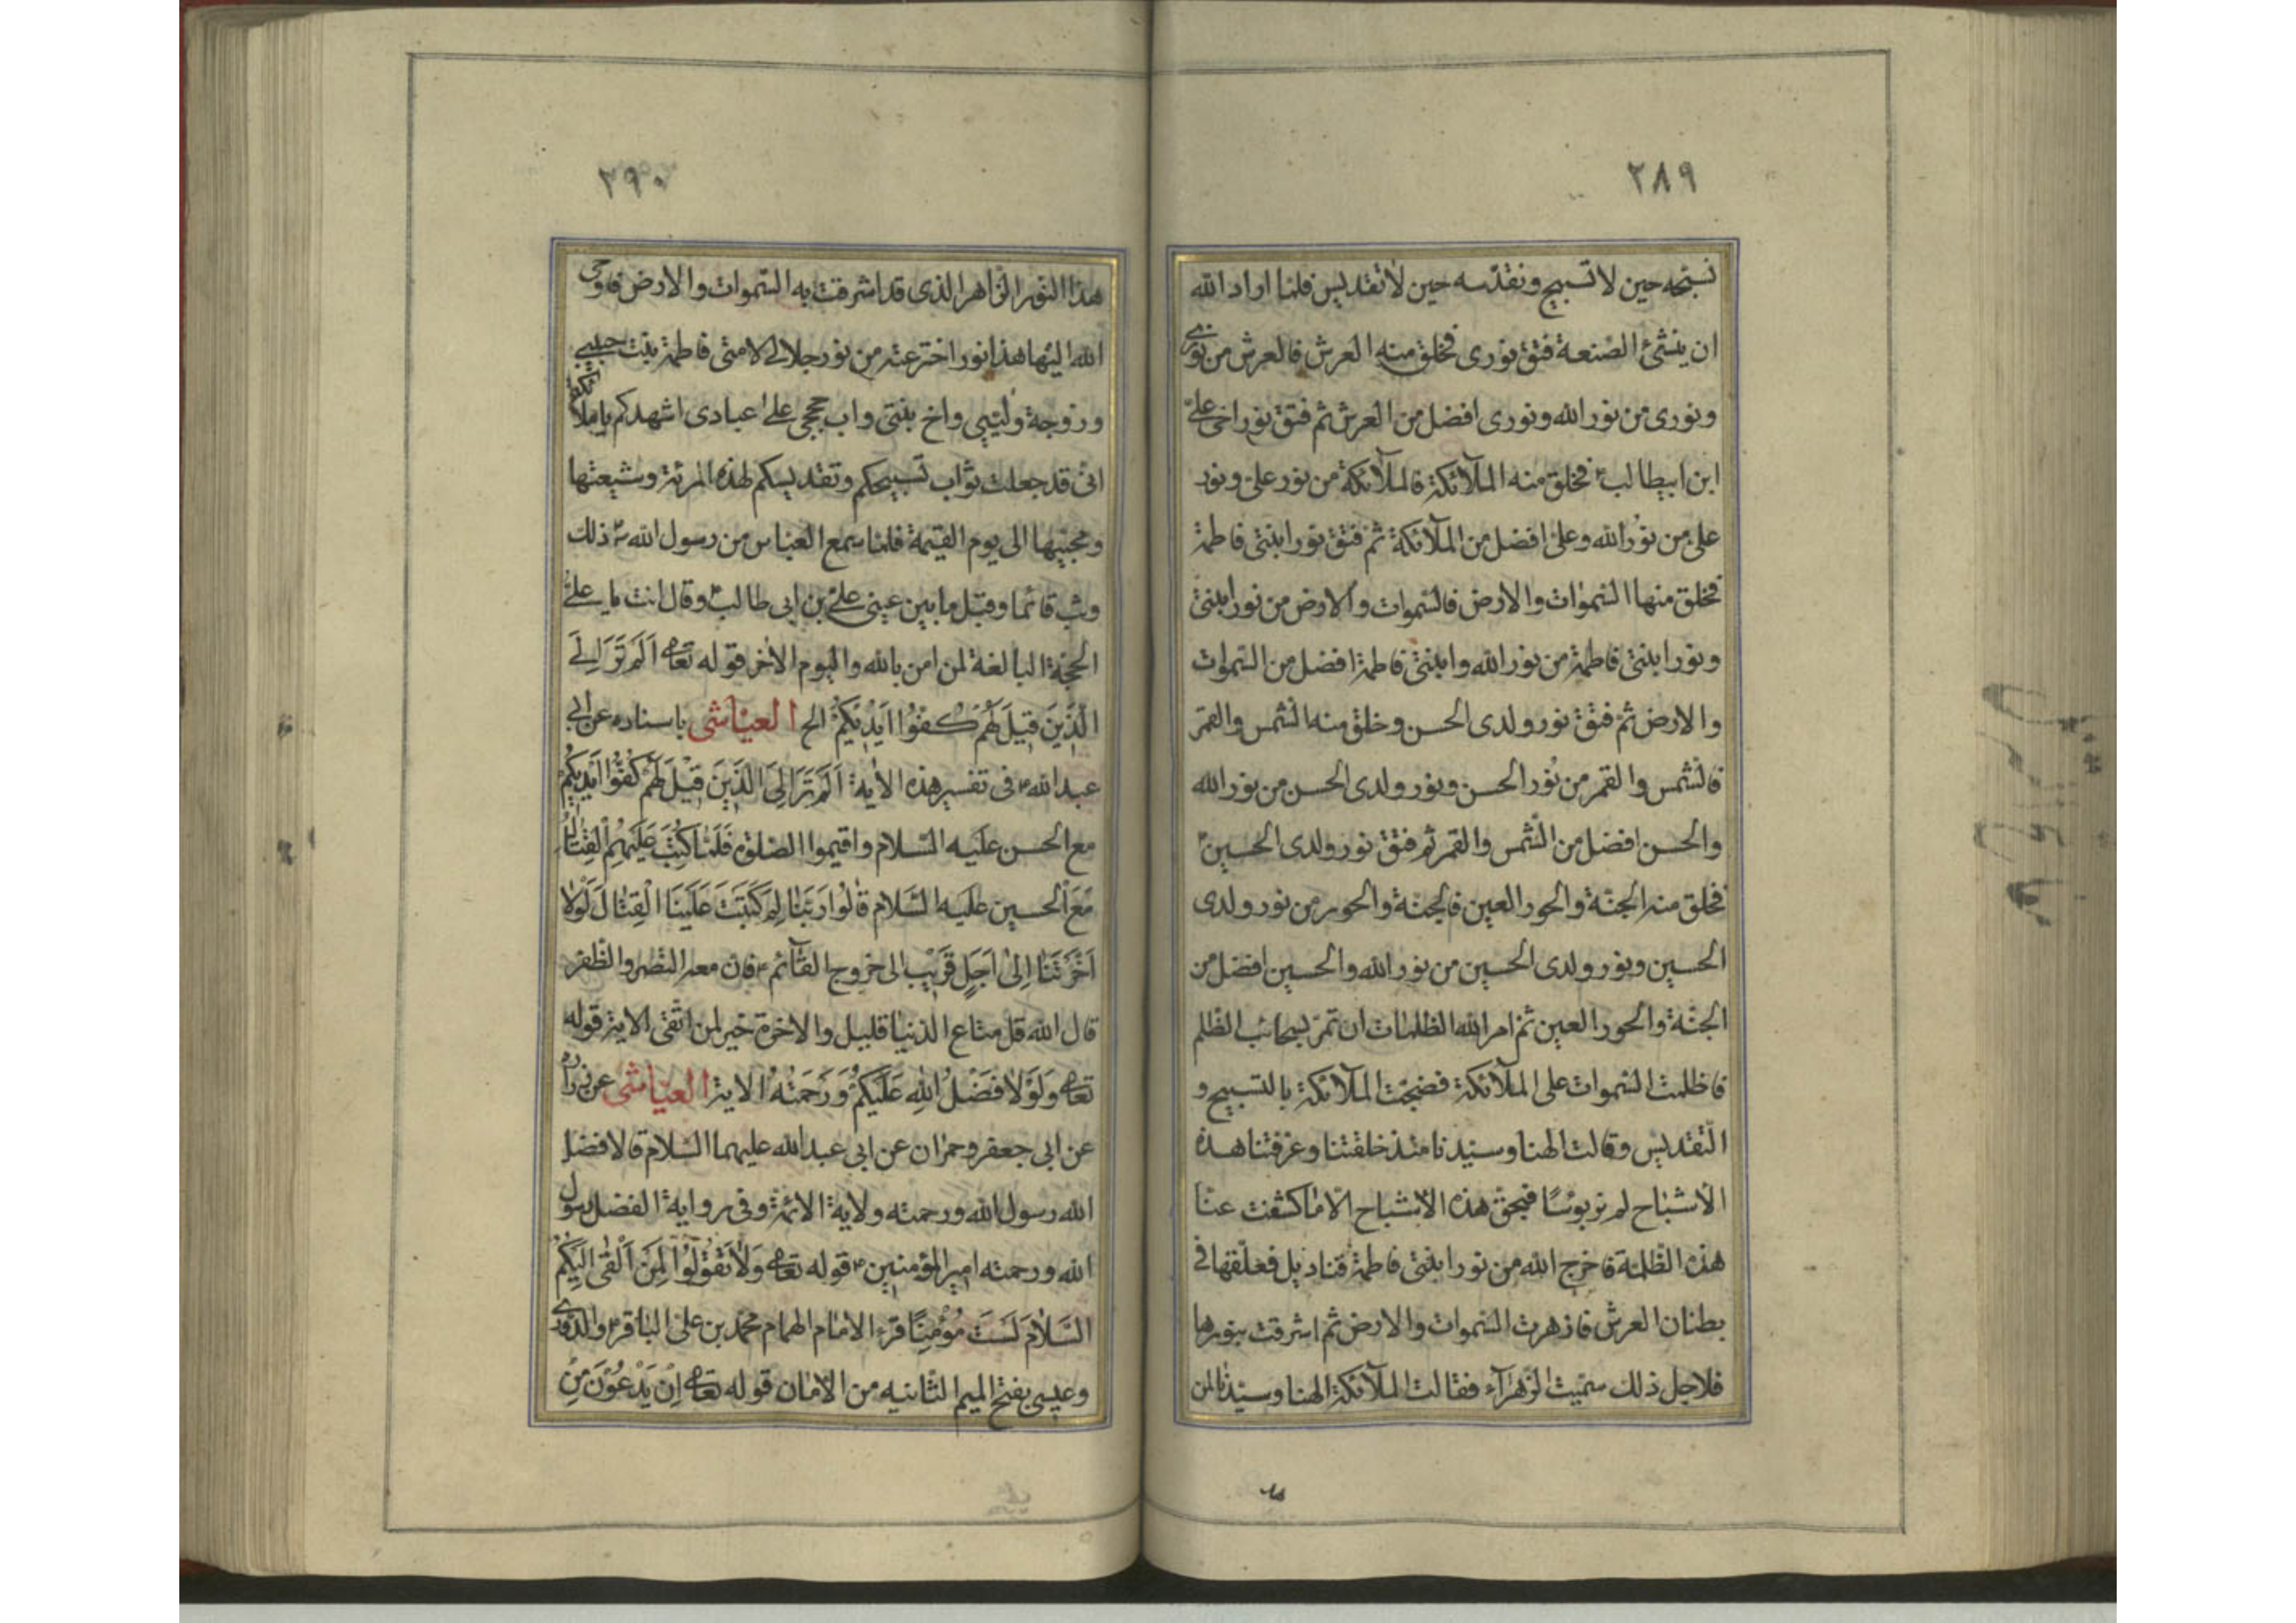 ٢٨٩
نسبّحه حين لا تسبيح ونقدّسه حين لا تقديس فلمّا اراد الله
ان ينشئ الصّنعة فتق نورى فخلق منه العرش فالعرش من نورى
ونورى من نور الله ونورى افضل من العرش ثم فتق نور اخى علىّ
ابن ابيطالب ع فخلق منه الملآئكة فالملآئكة من نور على ونور
علىّ من نور الله وعلىّ افضل من الملآئكة ثم فتق نور ابنتى فاطمة
فخلق منها السّموات والارض فالسّموات والارض من نور ابنتى
ونور ابنتى فاطمة من نور الله وابنتى فاطمة افضل من السّموات
والارض ثم فتق نور ولدى الحسن وخلق منه الشّمس والقمر
فالشّمس والقمر من نور الحسن ونور ولدى الحسن من نور الله
والحسن افضل من الشّمس والقمر ثم فتق نور ولدى الحسين ع
فخلق منه الجنّة والحور العين فالجنّة والحور من نور ولدى
الحسين ونور ولدى الحسين من نور الله والحسين افضل من
الجنّة والحور العين ثم امر الله الظلمات ان تمرّ بسحائب الظّلم
فاظلمت السّموات على الملآئكة فضجّت الملآئكة بالتسبيح و
التّقديس وقالت الهنا وسيّدنا منذ خلقتنا وعرفتنا هذه
الاشباح لم نر بوسًا فبحقّ هذه الاشباح الّا ما كشفت عنّا
هذه الظّلمة فاخرج الله من نور ابنتى فاطمة قناديل فعلّقها فى
بطنان العرش فازهرت السّموات والارض ثم اشرقت بنورها
فلاجل ذلك سمّيت الزّهرآء فقالت الملآئكة الهنا وسيّدنا لمن
٢٩٠
هذا النّور الزّاهر الذى قد اشرقت به السّموات والارض فاوحى
الله اليها هذا نور اخترعته من نور جلالى لامتى فاطمة بنت حبيبى
وزوجة وليّى واخ بنتى واب حججى على عبادى اشهدكم يا ملائكتى
انى قد جعلت ثواب تسبيحكم وتقديسكم لهذه المرئة وشيعتها
ومحبّيها الى يوم القيمة فلمّا سمع العبّاس من رسول الله ص ذلك
وثب قائما وقبّل ما بين عينى علىّ بن ابى طالب ع وقال انت يا علىّ
الحجّة البالغة لمن امن بالله واليوم الاخر قوله تعالى اَلَمْ تَرَ اِلَى
الَّذِينَ قِيلَ لَهُمْ كُفُّوا اَيْدِيَكُمْ الخ العيّاشى باسناده عن ابى
عبد الله ع فى تفسير هذه الآية اَلَمْ تَرَ اِلَى الَّذِينَ قِيلَ لَهُمْ كُفُّوا اَيْدِيَكُمْ
مع الحسن عليه السّلام واقيموا الصّلوة فَلَمَّا كُتِبَ عَلَيْهِمُ الْقِتَالُ
مَعَ الحسين عليه السّلام قَالُوا رَبَّنَا لِمَ كَتَبْتَ عَلَيْنَا الْقِتَالَ لَوْلَا
اَخَّرْتَنَا اِلَى اَجَلٍ قَرِيبٍ الى خروج القآئم ع فان معه النّصر والظّفر
قال الله قل متاع الدّنيا قليل والاخرة خير لمن اتّقى الاية قوله
تعالى وَلَوْلَا فَضْلُ اللهِ عَلَيْكُمْ وَرَحْمَتُهُ الاية العيّاشى عن زراره
عن ابى جعفر وحمران عن ابى عبد الله عليهما السّلام قالا فضل
الله رسول الله ورحمته ولاية الائمّة وفى رواية الفضل رسول
الله ورحمته امير المؤمنين ع قوله تعالى وَلَا تَقُولُوا لِمَنْ اَلْقَى اِلَيْكُمُ
السَّلَامَ لَسْتَ مُؤْمِنًا قرء الامام الهمام محمد بن على الباقر ع والدورى
وعيسى بفتح الميم الثّانيه من الامان قوله تعالى اِنْ يَدْعُونَ مِنْ